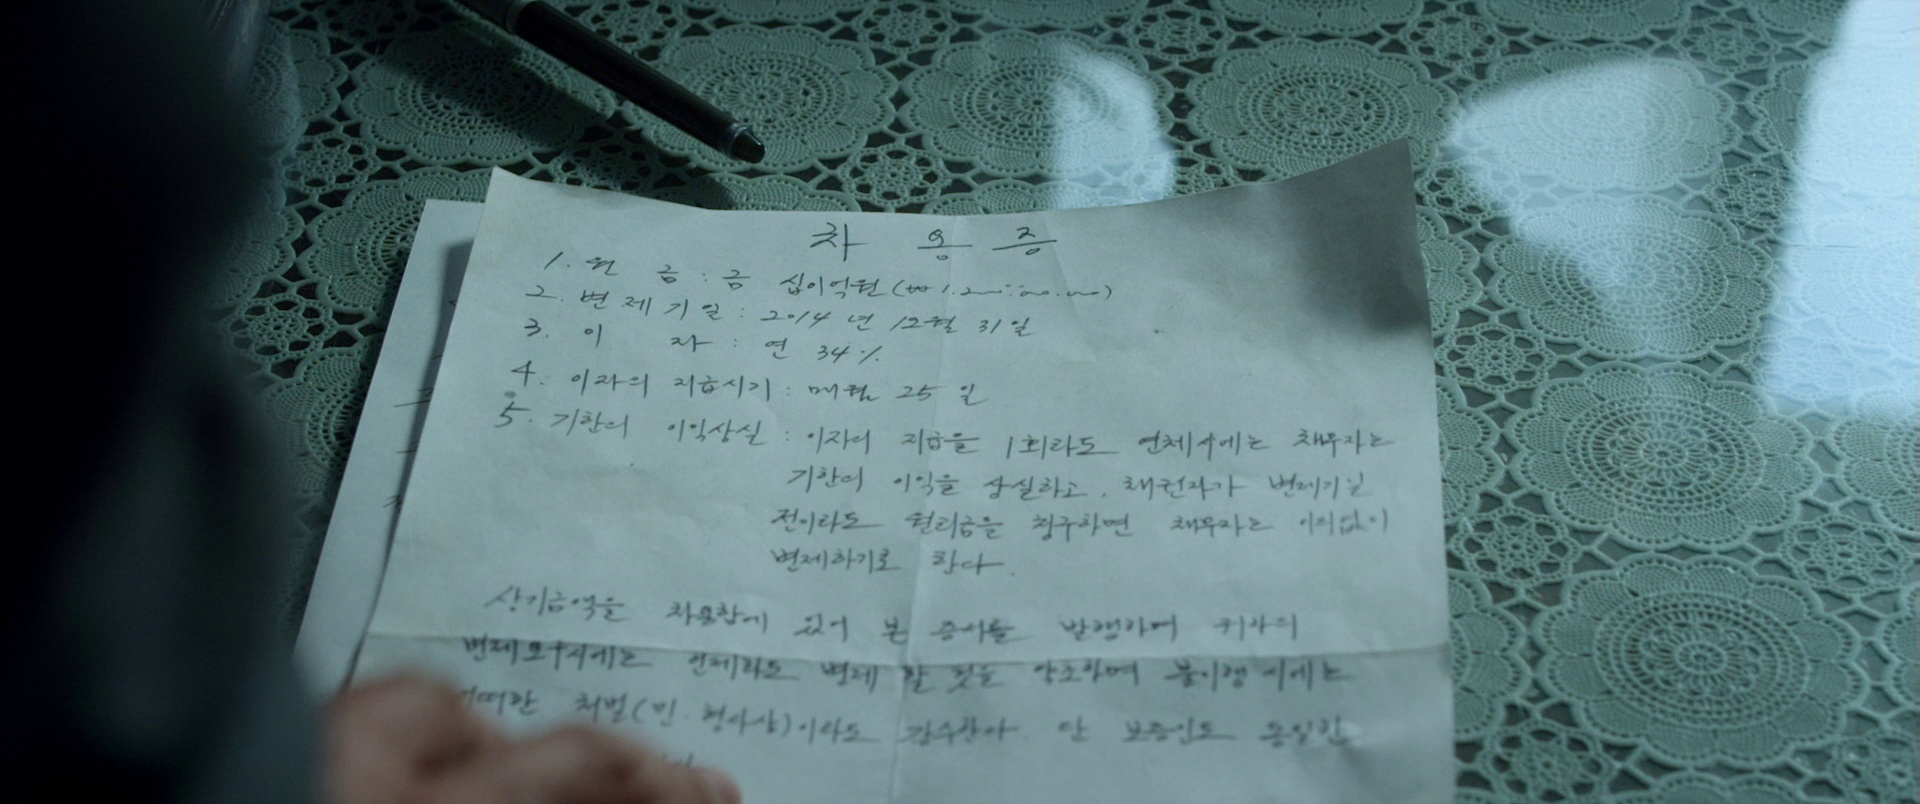 차 용 증
1. 원 금 : 금 십이억원 (₩1.200.000.000)
2. 변제기일 : 2014년 12월 31일
3. 이 자 : 연 34%
4. 이자의 지급시기 : 매월 25일
5. 기한의 이익상실 : 이자의 지급을 1회라도 연체시에는 채무자는
기한의 이익을 상실하고, 채권자가 변제기일
전이라도 원리금을 청구하면 채무자는 이의없이
변제하기로 한다.
상기금액을 차용함에 있어 본 증서를 발행하며 귀하의
변제요구시에는 언제라도 변제 할 것을 약조하며 불이행 시에는
처벌(민·형사상)이라도 단 보증인도 동일한